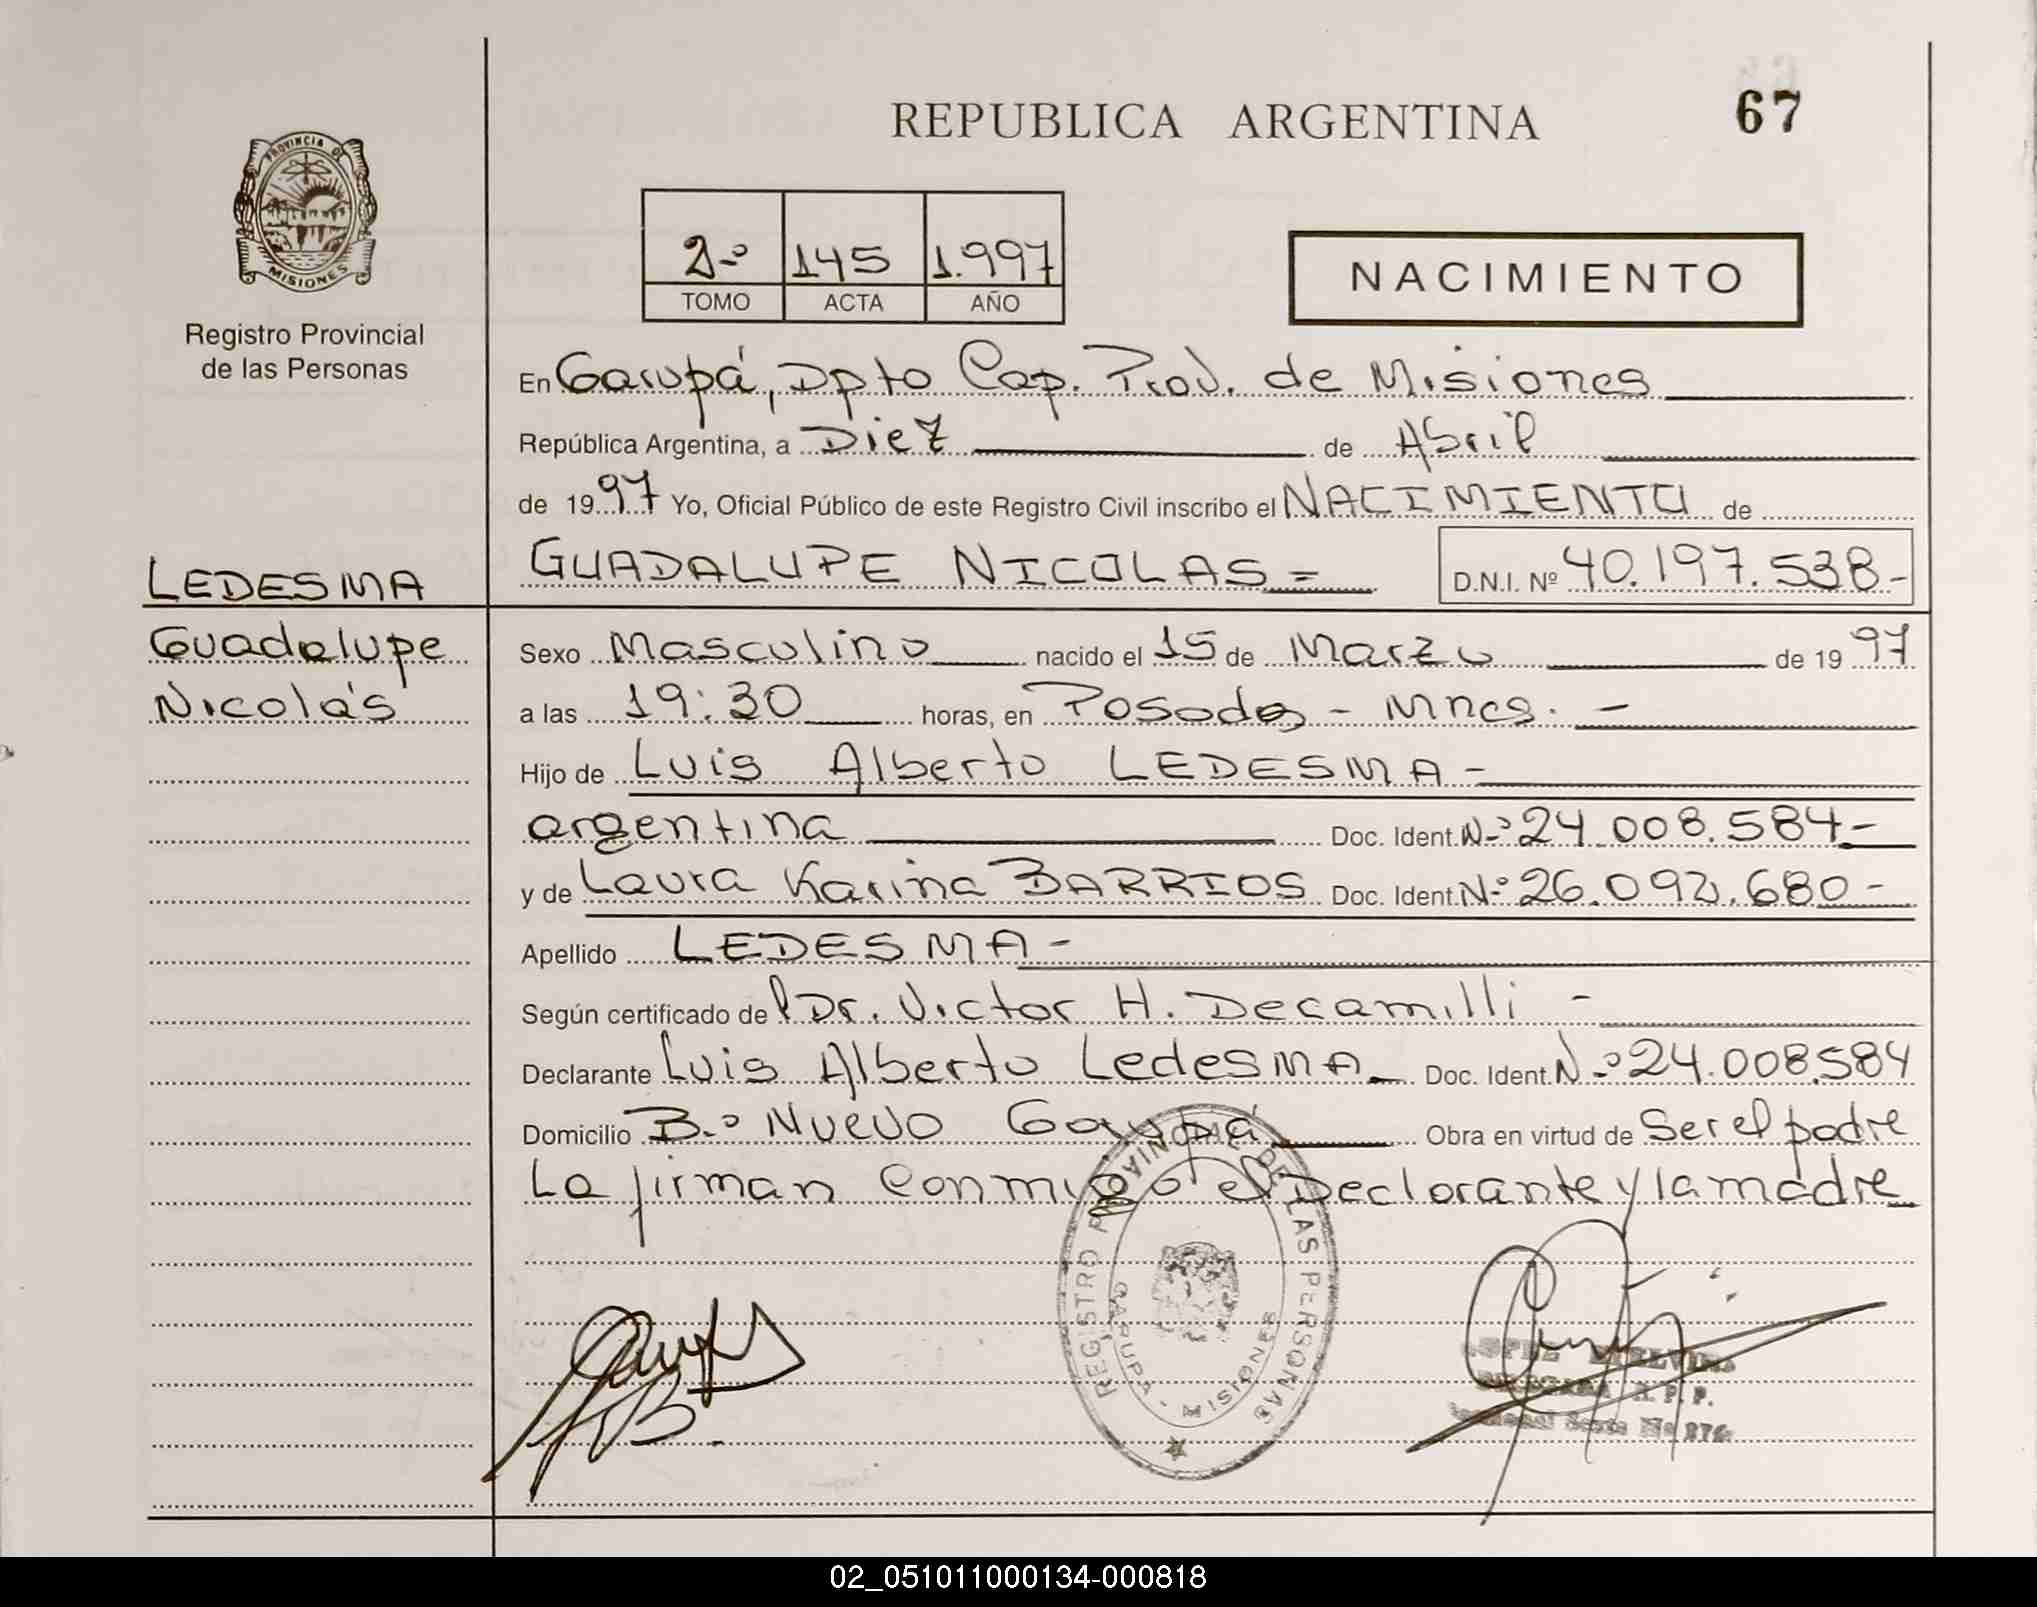 REPUBLICA ARGENTINA
67
PROVINCIA DE
MISIONES
Registro Provincial
de las Personas
2º 145 1.997
TOMO ACTA AÑO
NACIMIENTO
En Garupá, Dpto Cap. Prov. de Misiones
República Argentina, a Diez de Abril
de 1997 Yo, Oficial Público de este Registro Civil inscribo el NACIMIENTO de
LEDESMA
GUADALUPE NICOLAS = D.N.I. Nº 40.197.538-
Guadalupe
Sexo Masculino nacido el 15 de Marzo de 1997
Nicolás
a las 19:30 horas, en Posadas - Mnes. -
Hijo de Luis Alberto LEDESMA -
argentina Doc. Ident. Nº 24.008.584-
y de Laura Karina BARRIOS Doc. Ident. Nº 26.092.680-
Apellido LEDESMA -
Según certificado de Dr. Victor H. Decamilli -
Declarante Luis Alberto LedesMA Doc. Ident. Nº 24.008.584
Domicilio B.º Nuevo Garupá Obra en virtud de Ser el padre
La firman conmigo el Declarante y la madre
REGISTRO PROVINCIAL DE LAS PERSONAS
GARUPA - MISIONES
R. P. P.
02_051011000134-000818